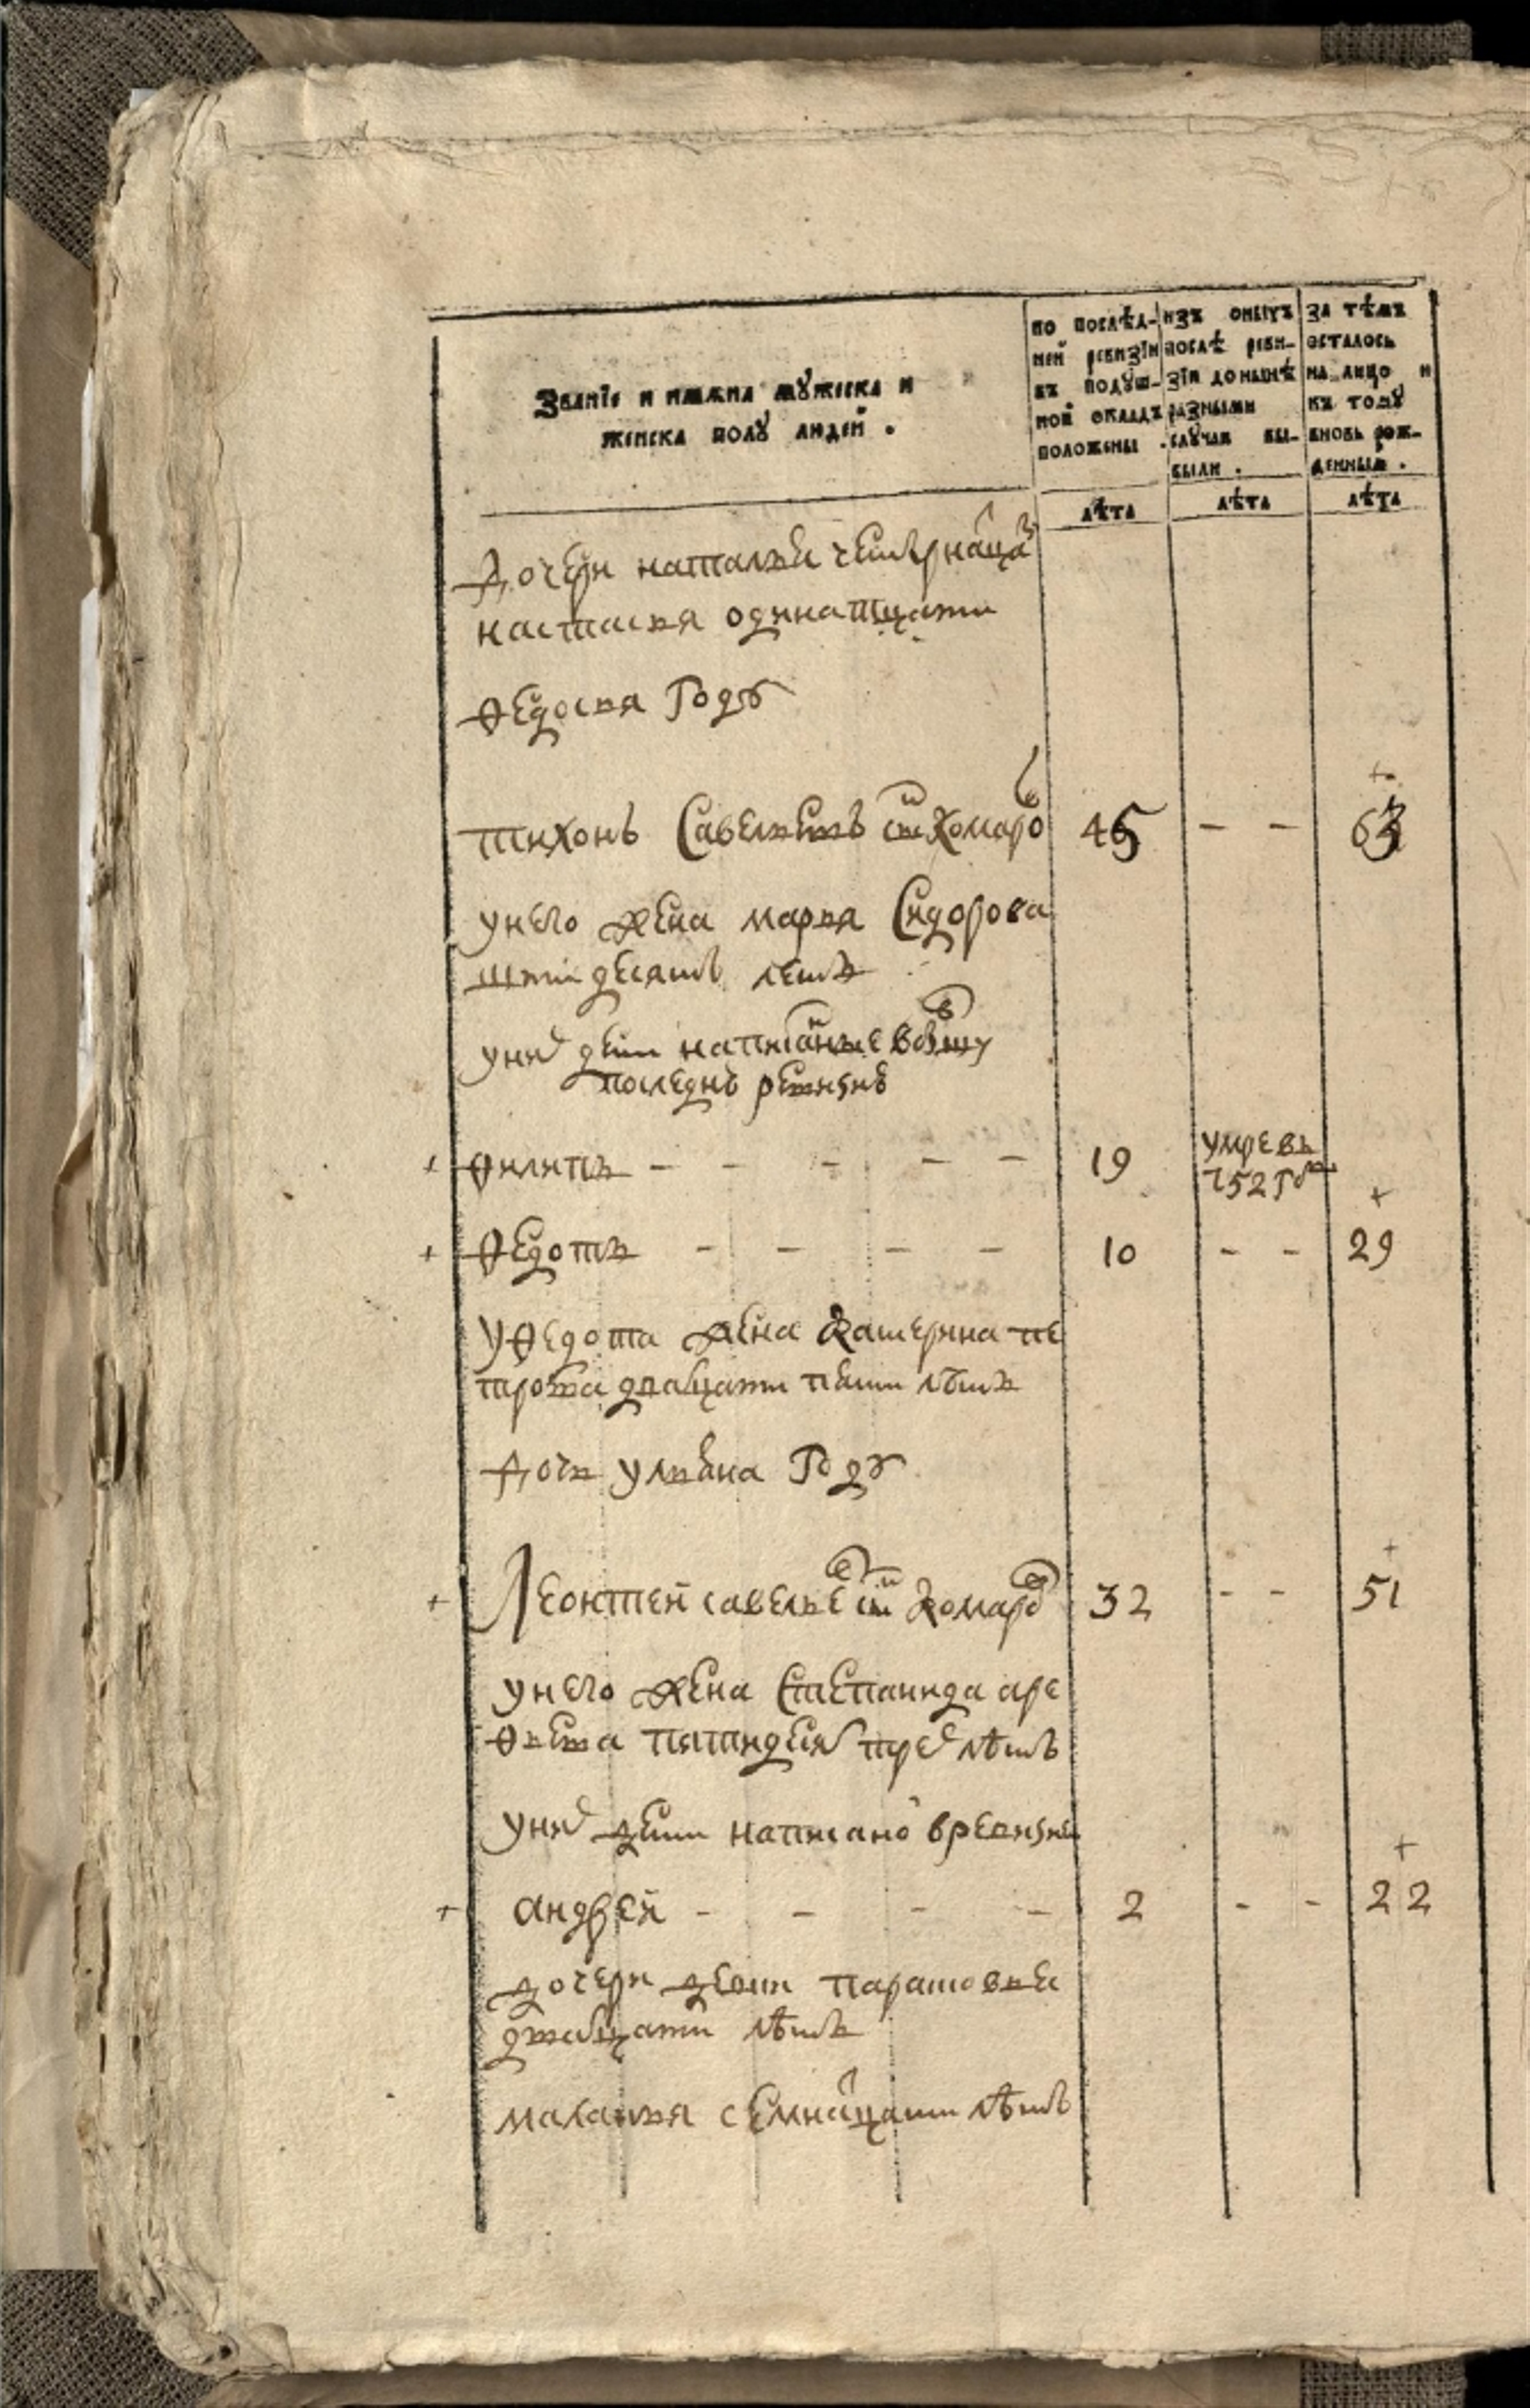 Званїе и имѧна мꙋжеска и
женска полꙋ людей .
по послѣд-
ней ревизїи
въ подꙋш-
ной окладъ
положены .
изъ оныхъ
послѣ реви-
зїи до нынѣ
разными
слꙋчаи вы-
были .
за тѣмъ
осталось
на лицо и
къ томꙋ
вновь рож-
денным .
лѣта лѣта лѣта
дочери наталья четырнацат
настасья одинатцати
ѳедосья году
тихонъ Савельевъ снъ Комаров 45 - - 63
у него жена марья Сидорова
шти десятъ летъ
у них дети написаные
последнѣ ревизиѣ
+ ѳилипъ - - - - - 19 умре въ
752 г
+
+ ѳедотъ - - - - 10 - - 29
у ѳедота жена Катерина пе
трова двацати пяти лѣтъ
дочь ульяна году
+ Леонтей савельев снъ Комаров 32 - - 51
у него жена Степанида аре
ѳьева пятидесят трех лѣтъ
у них дети написано в ревизие
+
+ андрей - - - - 2 - - 22
дочери парасковья
двацати лѣтъ
маланья семнацати лѣтъ